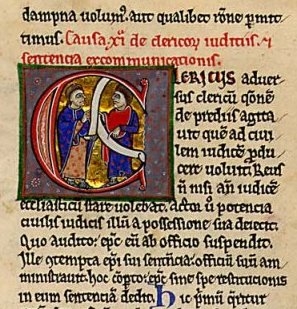 dampna volum⁹. aut qualibet rõne p̱mit
timus. Causa. xi. de clericoꝝ iuditiis. ⁊
sentencia excommunicationis.
CLERICUS adver
sus clericũ q̃onẽ
de prediis agita
uit quẽ ad ciui
lem iudicẽ p̱du
cere uoluit. Reus
ñ nisi añ iudicẽ
ecclesiasticũ stare uolebat. actor ũ potencia
ciuilis iudicis illũ a possessione sua deiecit.
Quo audito. ep̃c eũ ab officio suspendit.
Ille cõtempta ep̃i sui sentẽcia. officiũ suũ am
ministrauit. hoc cõp̱to. ep̃c sine spe restitucionis
in eum sentenciã dedit. Hic p̃mũ q̃ritur